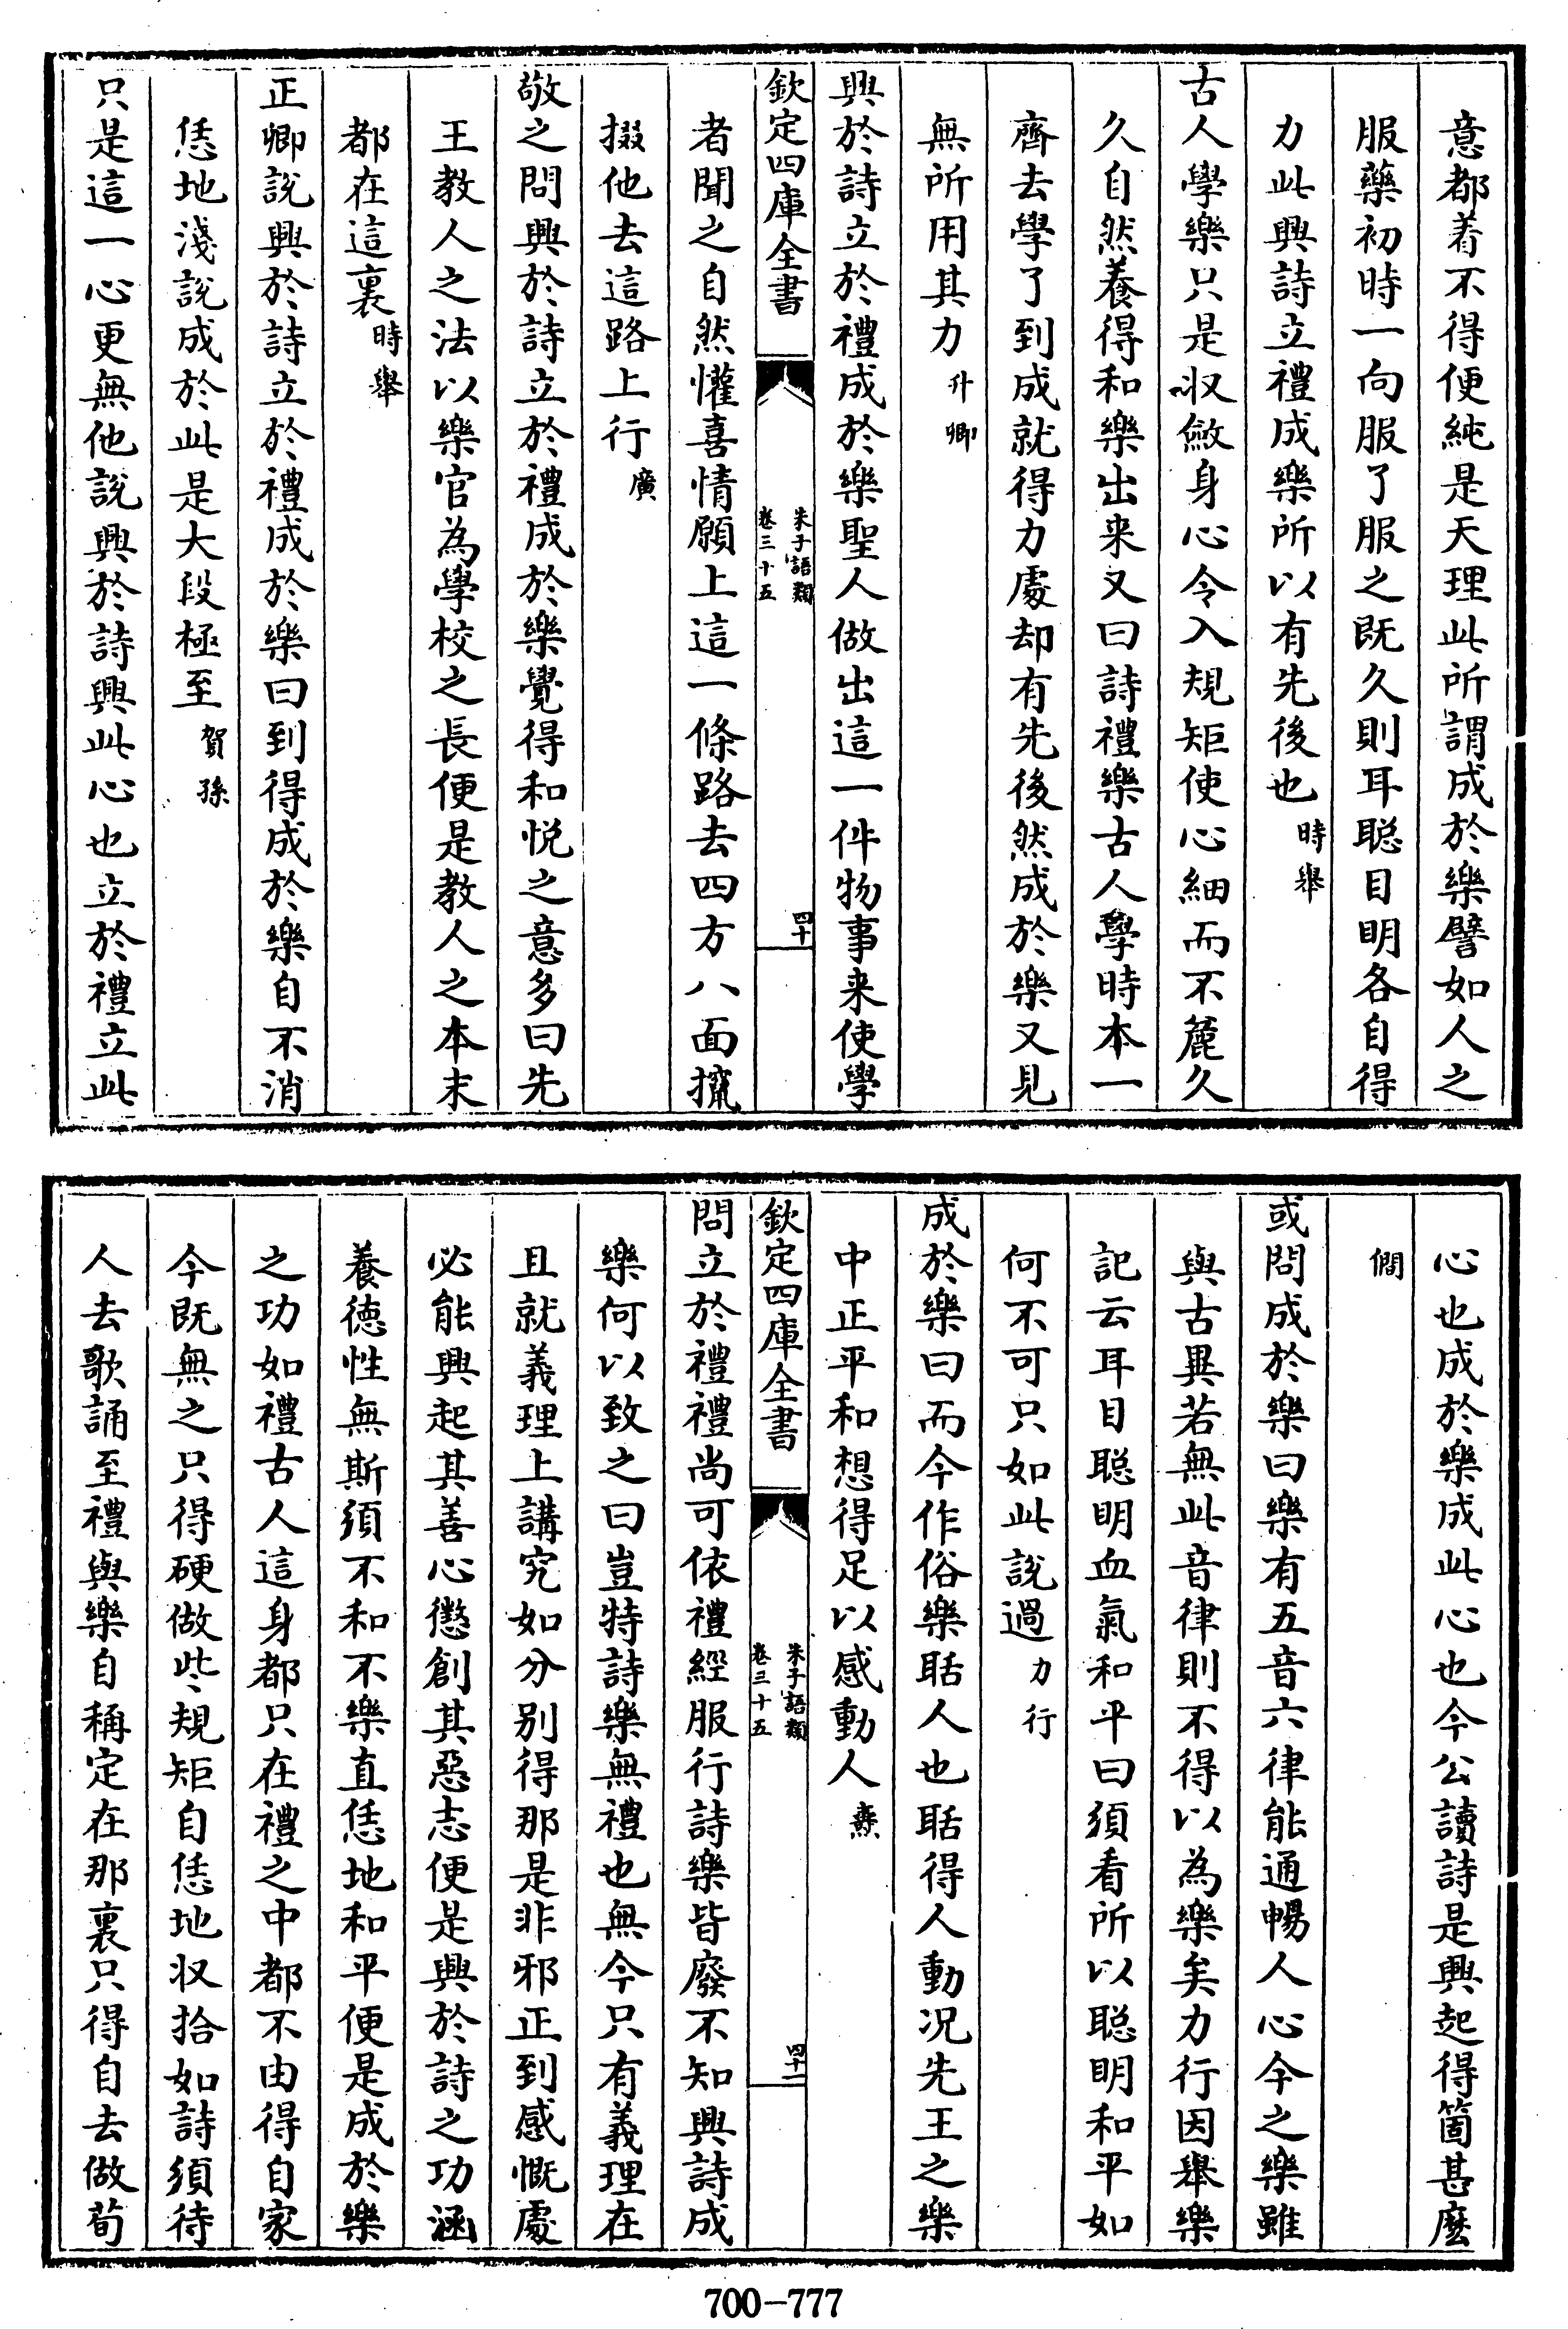 意都着不得便純是天理此所謂成於樂譬如人之
服藥初時一向服了服之既久則耳聪目明各自得
力此興詩立禮成樂所以有先後也時舉
古人學樂只是収斂身心令入規矩使心細而不麄久
久自然養得和樂出来又曰詩禮樂古人學時本一
齊去學了到成就得力處却有先後然成於樂又見
無所用其力升卿
興於詩立於禮成於樂聖人做出這一件物事来使學
欽定四庫全書
朱子語類
卷三十五
四十
者聞之自然懽喜情願上這一條路去四方八面攛
掇他去這路上行廣
敬之問興於詩立於禮成於樂覺得和悦之意多曰先
王教人之法以樂官為學校之長便是教人之本末
都在這裏時舉
正卿說興於詩立於禮成於樂曰到得成於樂自不消
恁地淺說成於此是大段極至賀孫
只是這一心更無他說興於詩興此心也立於禮立此
心也成於樂成此心也今公讀詩是興起得箇甚麽
僩
或問成於樂曰樂有五音六律能通暢人心今之樂雖
與古異若無此音律則不得以為樂矣力行因舉樂
記云耳目聪明血氣和平曰須看所以聪明和平如
何不可只如此說過力行
成於樂曰而今作俗樂聒人也聒得人動况先王之樂
中正平和想得足以感動人燾
欽定四庫全書
朱子語類
卷三十五
四十一
問立於禮禮尚可依禮經服行詩樂皆廢不知興詩成
樂何以致之曰豈特詩樂無禮也無今只有義理在
且就義理上講究如分别得那是非邪正到感慨處
必能興起其善心懲創其惡志便是興於詩之功涵
養德性無斯須不和不樂直恁地和平便是成於樂
之功如禮古人這身都只在禮之中都不由得自家
今既無之只得硬做些規矩自恁地収拾如詩須待
人去歌誦至禮與樂自稱定在那裏只得自去做荀
700-777